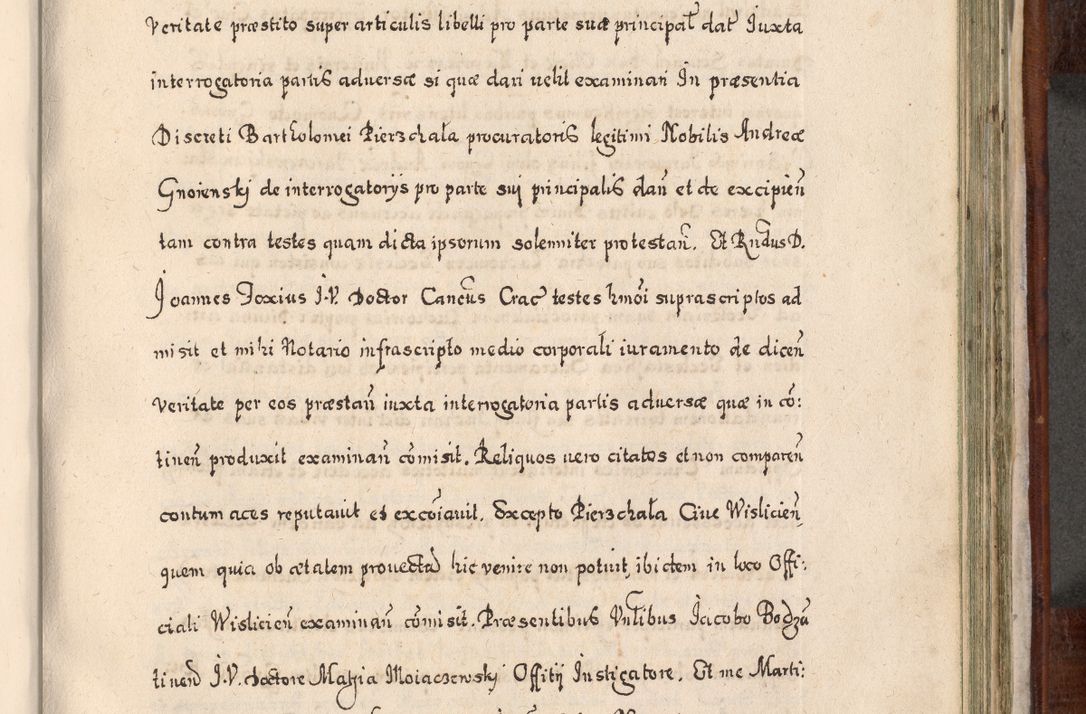 Veritate præstito super articulis libelli pro parte suæ principał dať Juxta
interrogatoria partis aduersæ si quæ dari uelit examinari In præsentia
Discreti Bartholomei Pierzchała procuratoris legitimi Nobilis Andreæ
Gnoienskj de interrogatorijs pro parte suj principalis dañ et de excipieñ
tam contra testes quam dicta ipsorum solenniter protestañ. Et Rñdus D.
Joannes Foxius J.V. Doctor Cancũs Crac̃ testes hm̃oi suprascriptos ad
misit et mihi Notario infrascripto medio corporali iuramento de diceñ
veritate per eos præstañ iuxta interrogatoria partis aduersæ quæ in cõ:
tineñ produxit examinañ cõmisit. Reliquos uero citatos et non compareñ
contumaces reputauit et excõiauit. Excepto Pierzchała Ciue Wislicieñ,
quem quia ob ætatem prouectã hic venire non potuit, ibidem in loco Offi:
ciali Wislicieñ examinañ cõmisit. Præsentibus Vñlibus Jacobo Bodzã
tineñ J.V. doctore Mathia Moiaczewskj Offitij Instigatore. Et me Marti: